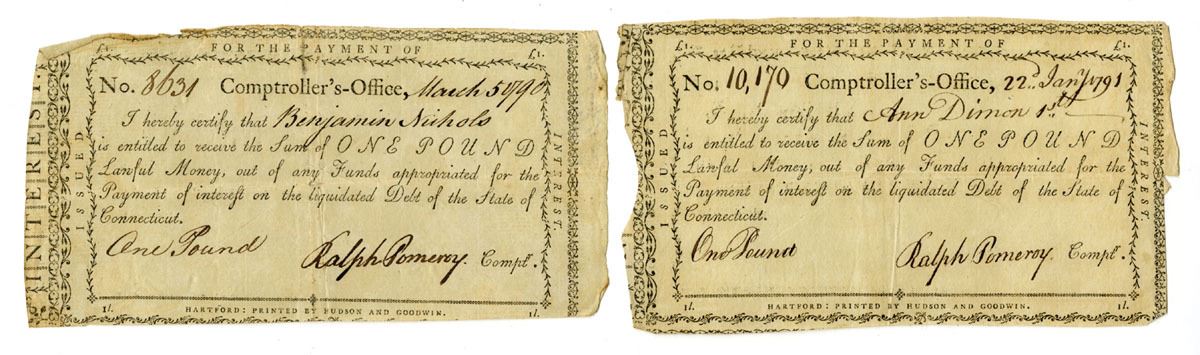 INTEREST.
£1. FOR THE PAYMENT OF £1.
No. 8631 Comptroller's-Office, March 5 1790
I hereby certify that Benjamin Nichols
is entitled to receive the Sum of ONE POUND
Lawful Money, out of any Funds appropriated for the
Payment of interest on the liquidated Debt of the State of
Connecticut.
One Pound Ralph Pomeroy. Compt^r.
ISSUED
INTEREST.
1l. HARTFORD: PRINTED BY HUDSON AND GOODWIN. 1l.
£1. FOR THE PAYMENT OF £1.
No. 10,170 Comptroller's-Office, 22d. Jany 1791
I hereby certify that Ann Dimon 1st
is entitled to receive the Sum of ONE POUND
Lawful Money, out of any Funds appropriated for the
Payment of interest on the liquidated Debt of the State of
Connecticut.
One Pound Ralph Pomeroy. Compt^r.
ISSUED
INTEREST.
1l. HARTFORD: PRINTED BY HUDSON AND GOODWIN. 1l.